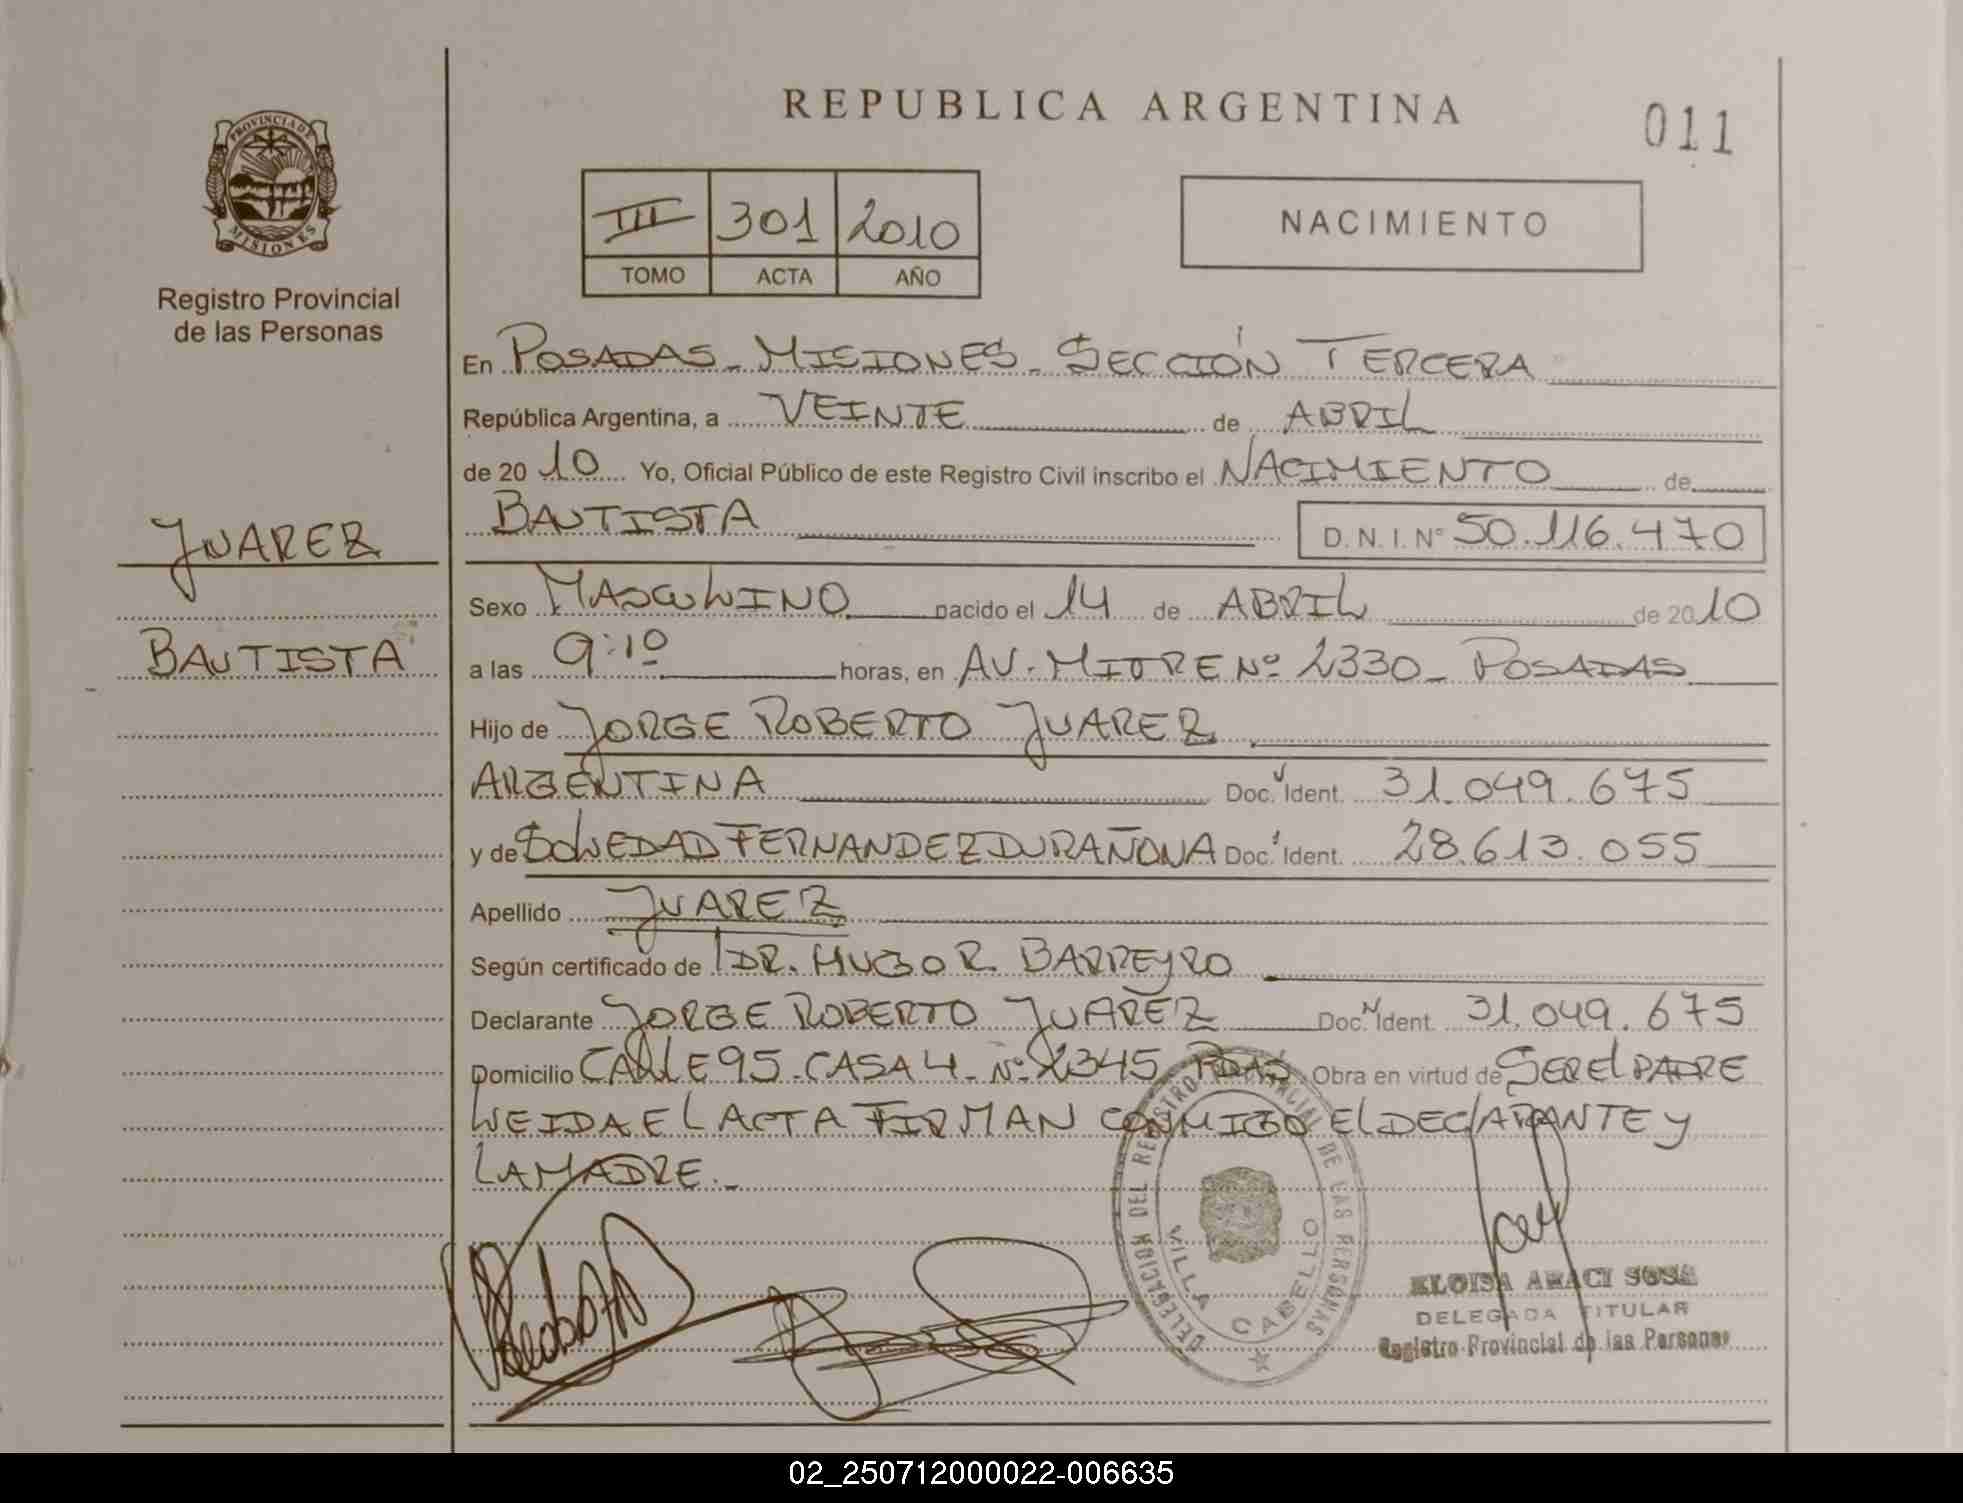 REPUBLICA ARGENTINA
011
PROVINCIA DE MISIONES
Registro Provincial
de las Personas
III 301 2010
TOMO ACTA AÑO
NACIMIENTO
En POSADAS - MISIONES - SECCIÓN TERCERA
República Argentina, a VEINTE de ABRIL
de 2010 Yo, Oficial Público de este Registro Civil inscribo el NACIMIENTO de
BAUTISTA D.N.I. Nº 50.116.470
JUAREZ
BAUTISTA
Sexo MASCULINO nacido el 14 de ABRIL de 2010
a las 9:10 horas, en AV. MITRE Nº 2330 - POSADAS
Hijo de JORGE ROBERTO JUAREZ
ARGENTINA Doc. Ident. 31.049.675
y de SOLEDAD FERNANDEZ DURAÑONA Doc. Ident. 28.613.055
Apellido JUAREZ
Según certificado de DR. HUGO R. BARREYRO
Declarante JORGE ROBERTO JUAREZ Doc. Ident. 31.049.675
Domicilio CALLE 95 - CASA 4 - Nº 2345 PDAS Obra en virtud de SER EL PADRE
LEIDA EL ACTA FIRMAN CONMIGO EL DECLARANTE Y
LA MADRE.-
DELEGACION DEL REGISTRO PROVINCIAL DE LAS PERSONAS
VILLA CABELLO
ELOISA ARACI SOSA
DELEGADA TITULAR
Registro Provincial de las Personas
02_250712000022-006635